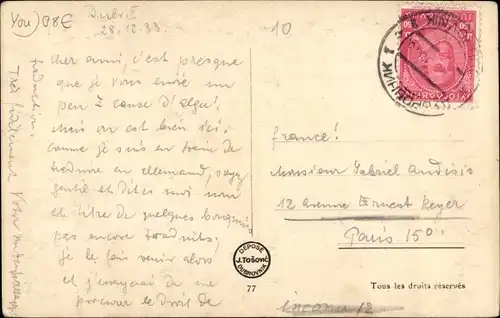 You) 08€
10
28.12.33
cher ami, c'est presque
que je vous envié un
peu à cause d'
mais on est bien ici.
comme je suis en train de
traduire en allemand, soyez
gentil et dites moi nom
et titre de quelques
pas encore traduits,
je le fais venir alors
et j'essayerai de me
procurer le droit de
traduction.
Très
France!
Monsieur Gabriel Audisio
12 Avenue Ernest Reyer
Paris 15e
DÉPOSÉ
J. TOŠOVIĆ
DUBROVNIK
77
Tous les droits réservés